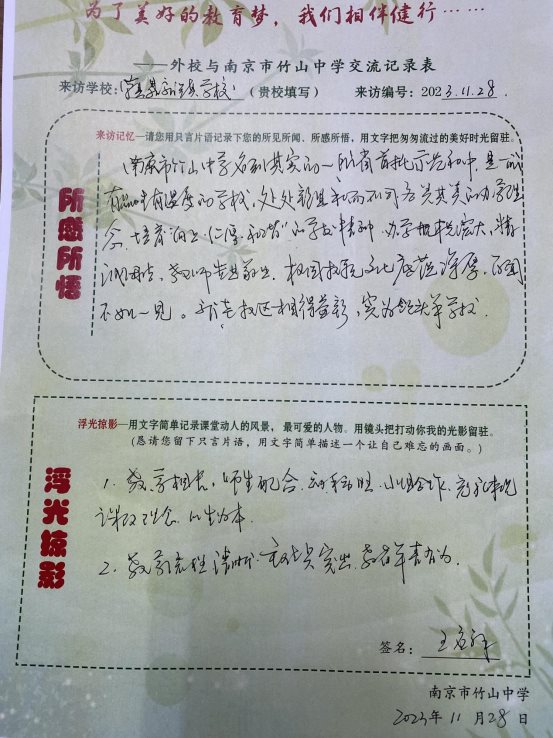 为了美好的教育梦，我们相伴健行……
——外校与南京市竹山中学交流记录表
来访学校：学校（贵校填写） 来访编号：2023.11.28.
来访记忆—请您用只言片语记录下您的所见所闻、所感所悟，用文字把匆匆流过的美好时光留驻。
所感所悟
南京市竹山中学名副其实的一所省首批示范初中，是一所
有温度的学校，处处彰显和而不同各美其美的办学理
念，培育"向上、仁厚、和谐"的学校精神，办学规模宏大，
教师，校园文化底蕴深厚，百闻
不如一见。校区相得益彰，实为学校。
浮光掠影—用文字简单记录课堂动人的风景，最可爱的人物。用镜头把打动你我的光影留驻。
（恳请您留下只言片语，用文字简单描述一个让自己难忘的画面。）
浮光掠影
1. 教学相长，师生配合，小组合作，充分体现
课改理念，以生为本．
2. 教学流程清晰，重难点突出，教者年青有为．
签名：王
南京市竹山中学
2023年 11 月 28 日